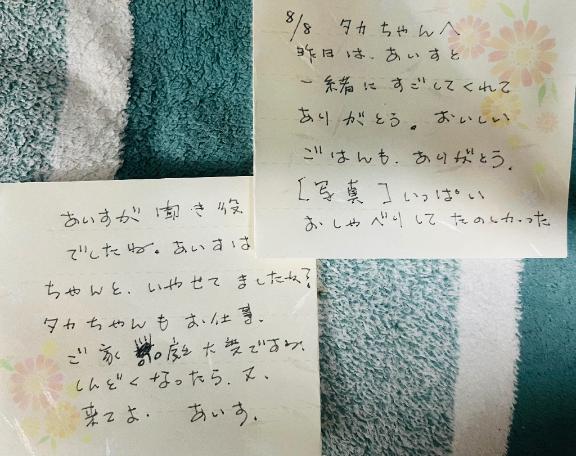 8/8 タカちゃんへ
昨日は、あいすと
一緒にすごしてくれて
ありがとう。おいしい
ごはんも、ありがとう。
[写真]いっぱい
おしゃべりしてたのしかった
あいすが聞き役
でしたね。あいすは
ちゃんと、いやせてましたね?
タカちゃんもお仕事、
ご家庭大変ですね、
しんどくなったら、又、
来てよ。 あいす。